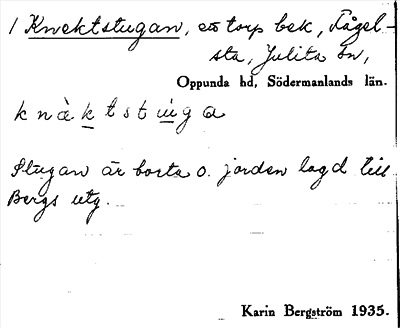 1 Knektstugan, en torp bek, Fågel-
sta, Julita sn,
Oppunda hd, Södermanlands län.
knàktstúga
Stugan är borta o. jorden lagd till
Bergs utg.
Karin Bergström 1935.